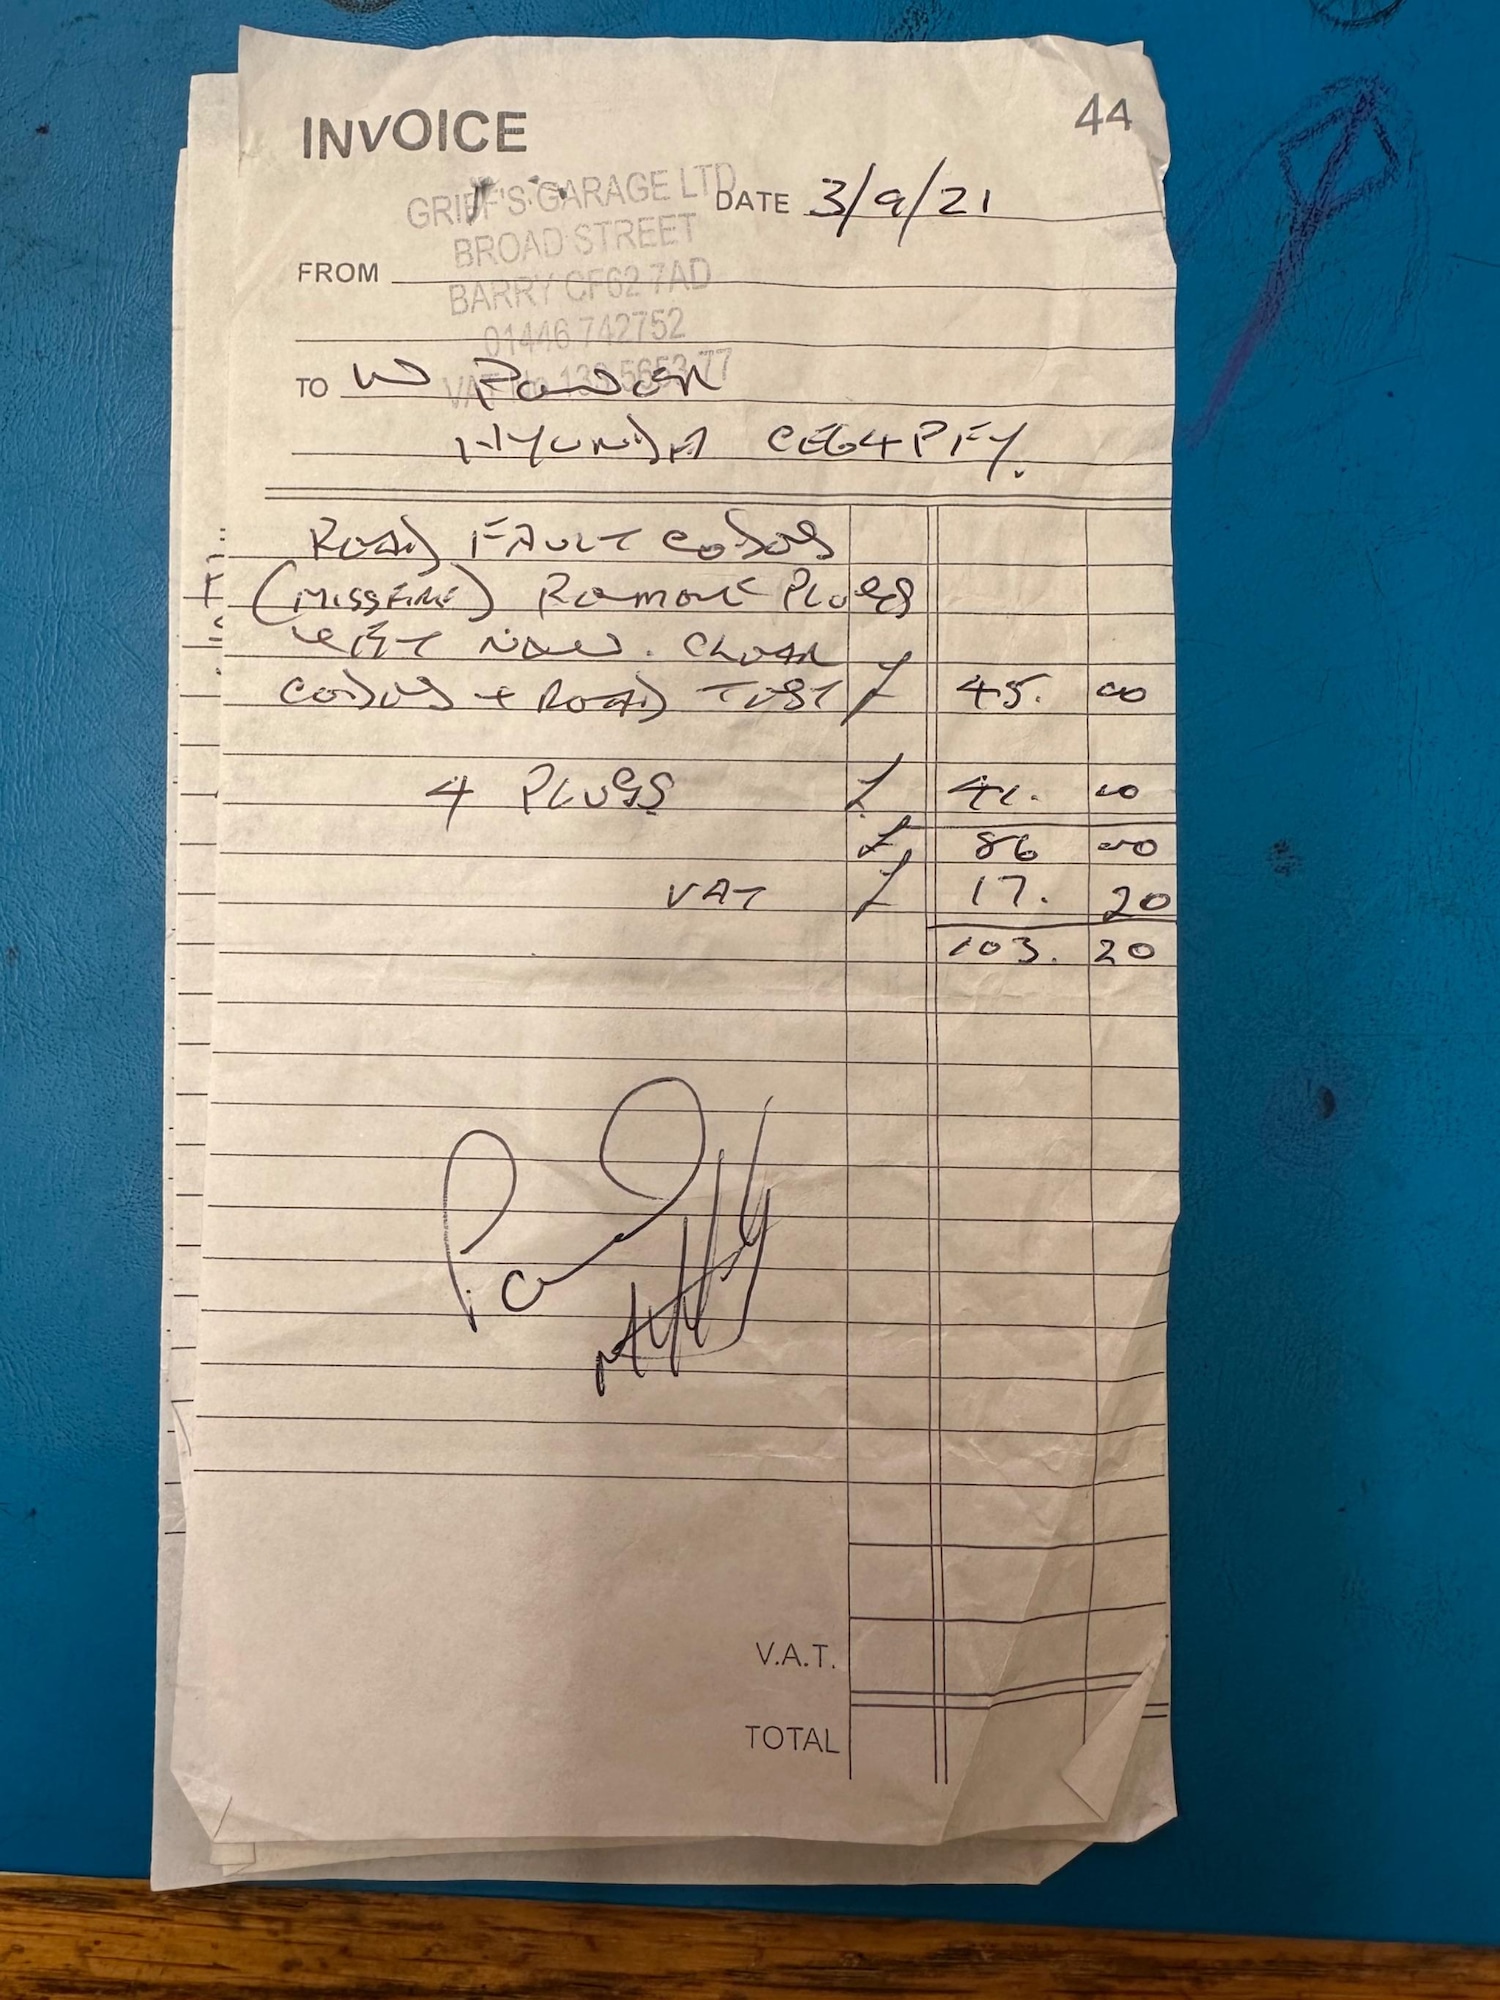 INVOICE
44
GRIFF'S GARAGE LTD
BROAD STREET
BARRY CF62 7AD
01446 742752
VAT No 5653 77
DATE 3/9/21
FROM
TO W
HYUNDA CE64PFY.
READ FAULT CODES
(MISSFIRE) REMOVE PLUGS
NEW. CLEAR
CODES + ROAD TEST £ 45. 00
4 PLUGS £ 41. 00
£ 86 00
VAT £ 17. 20
103. 20
Paid
V.A.T.
TOTAL